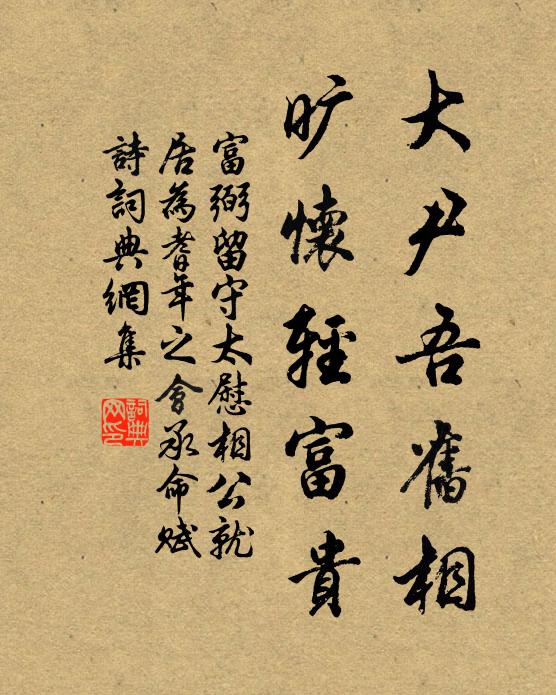 大尹吾舊相
曠懷輕富貴
富弼留守太慰相公就
居為耆年之會承命賦
詩詞典網集
詞典网印